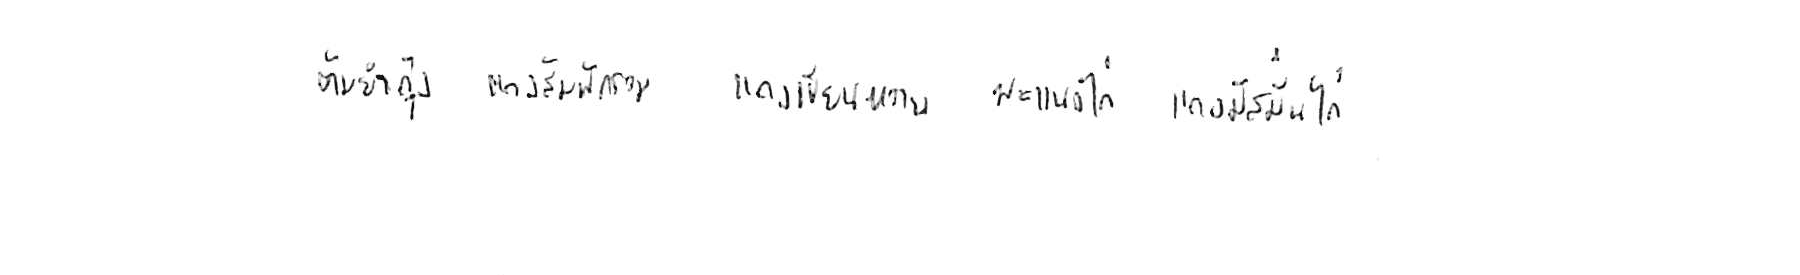 ต้มยำกุ้ง แกงส้มผักรวม แกงเขียนหวาน พะแนงไก่ แกงมัสมั่นไก่